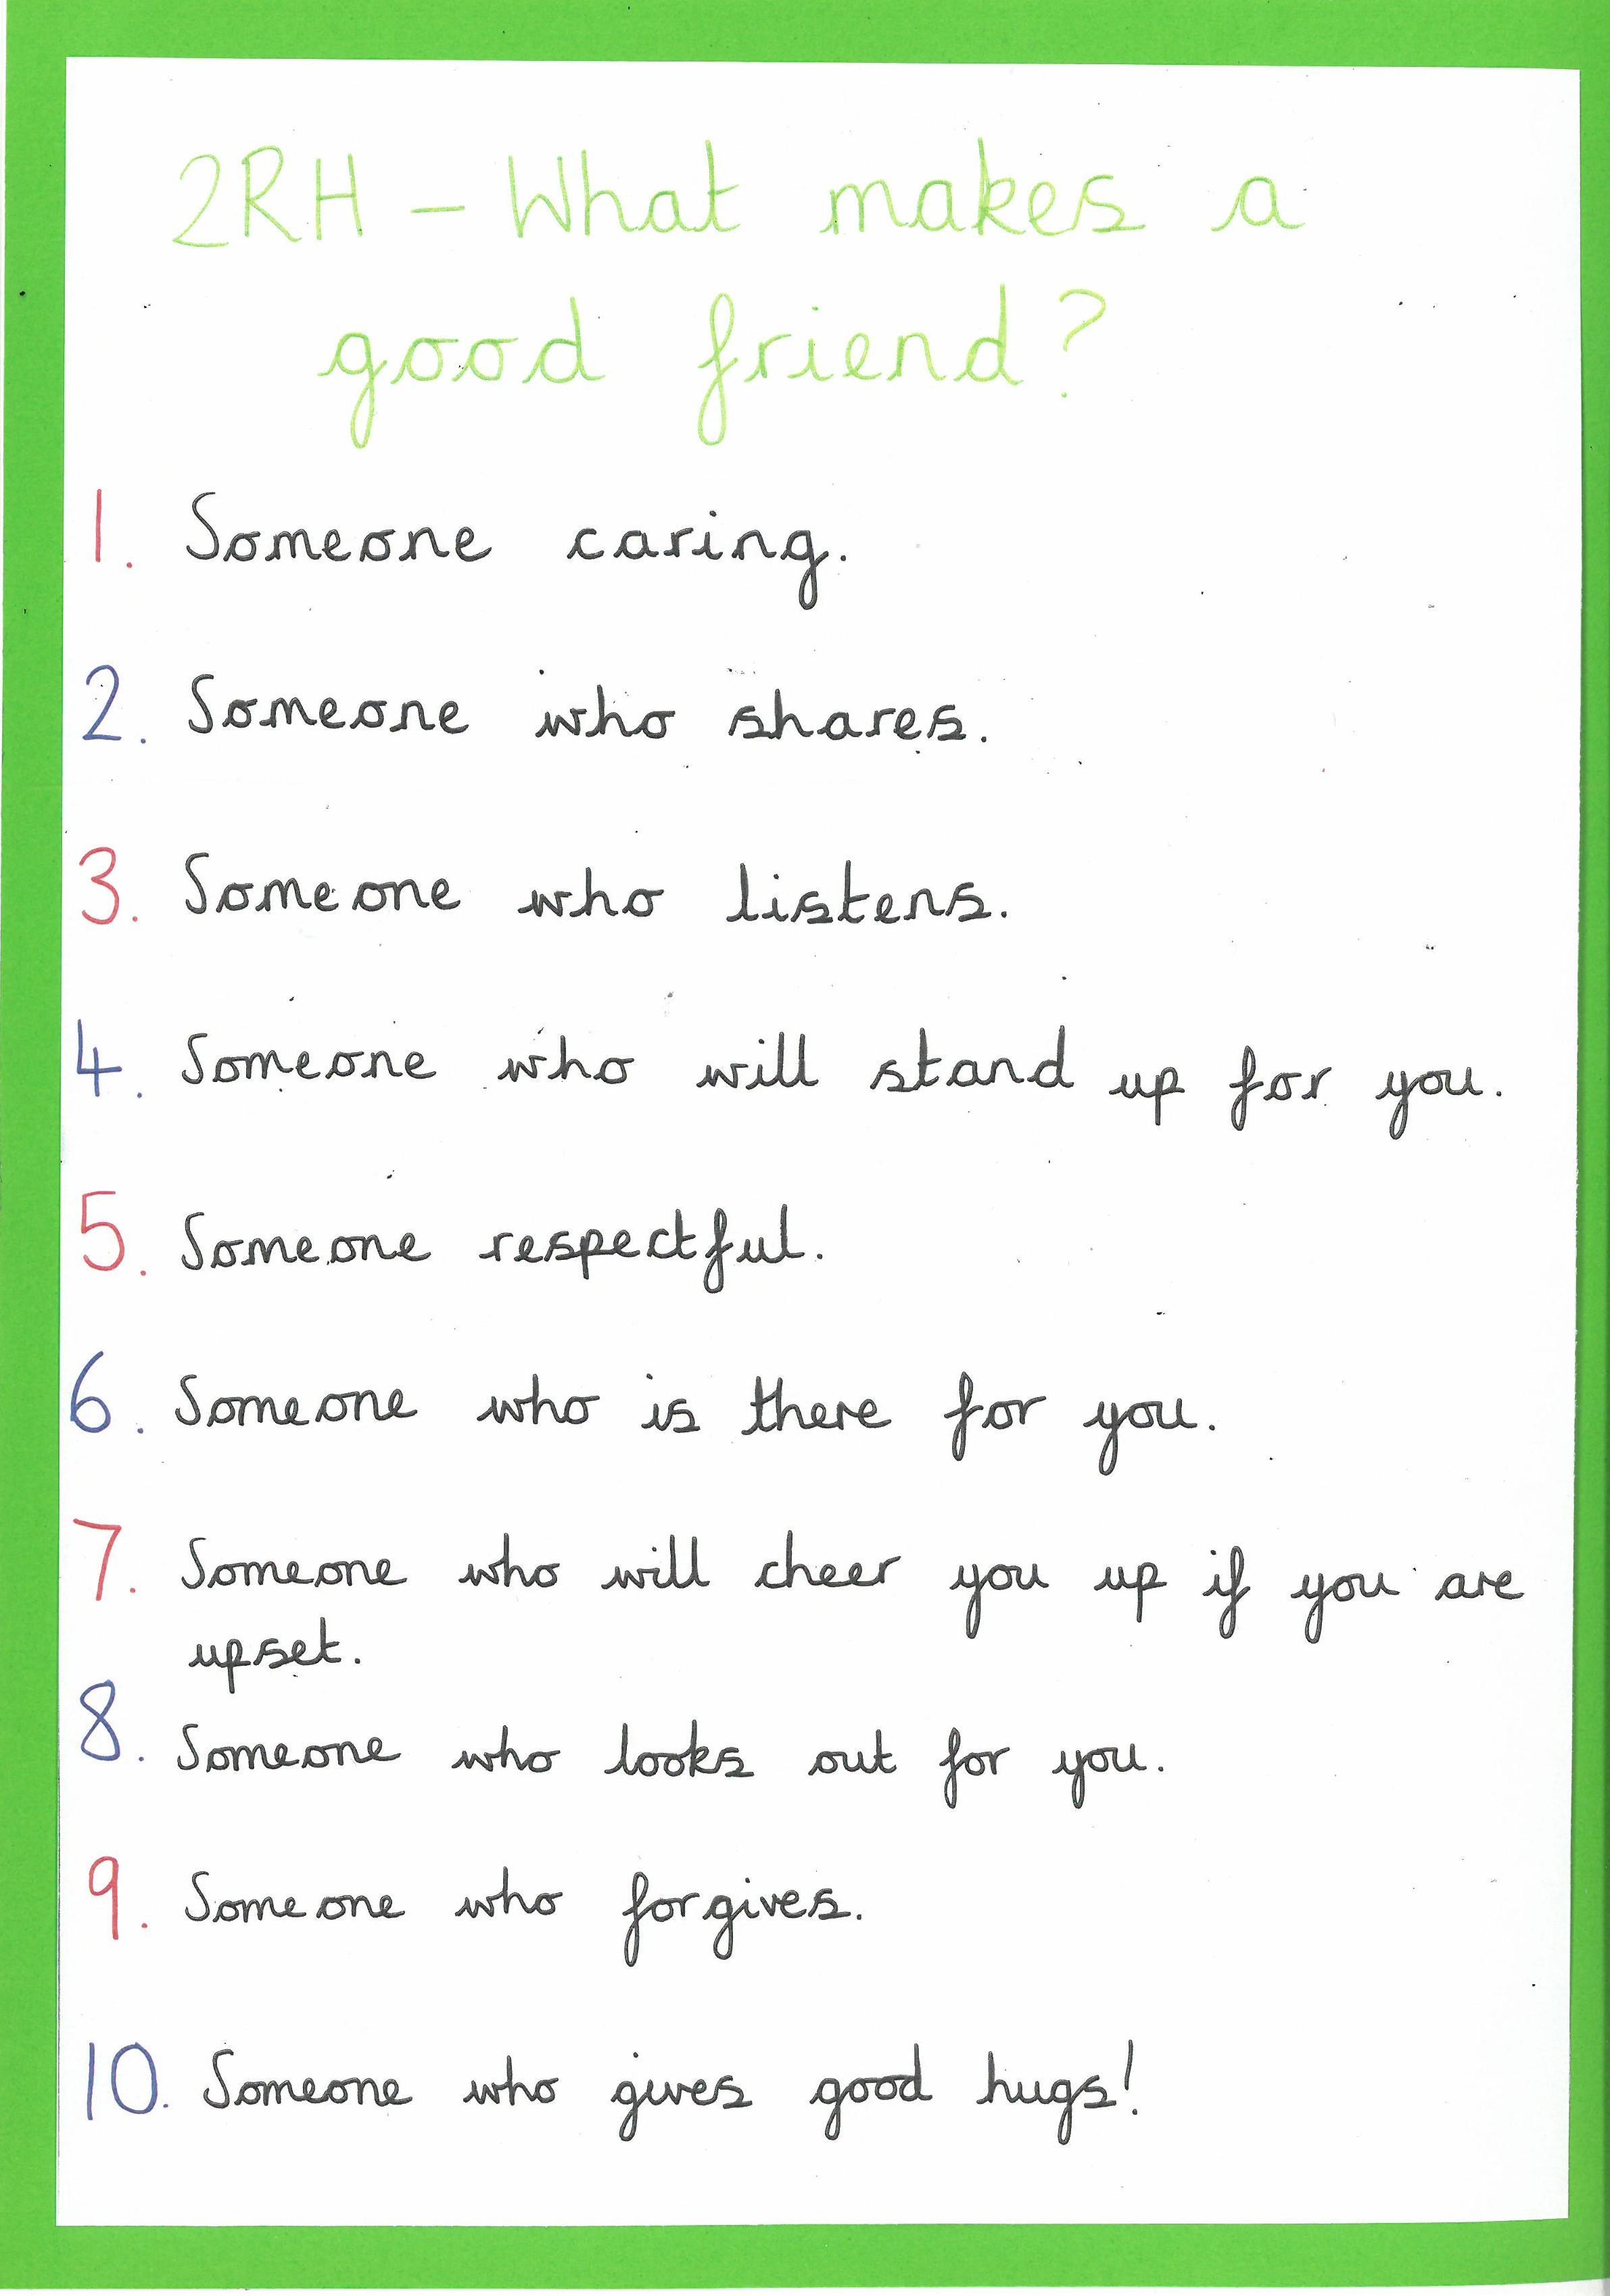 2RH – What makes a
good friend?
1. Someone caring.
2. Someone who shares.
3. Someone who listens.
4. Someone who will stand up for you.
5. Someone respectful.
6. Someone who is there for you.
7. Someone who will cheer you up if you are
upset.
8. Someone who looks out for you.
9. Someone who forgives.
10. Someone who gives good hugs!